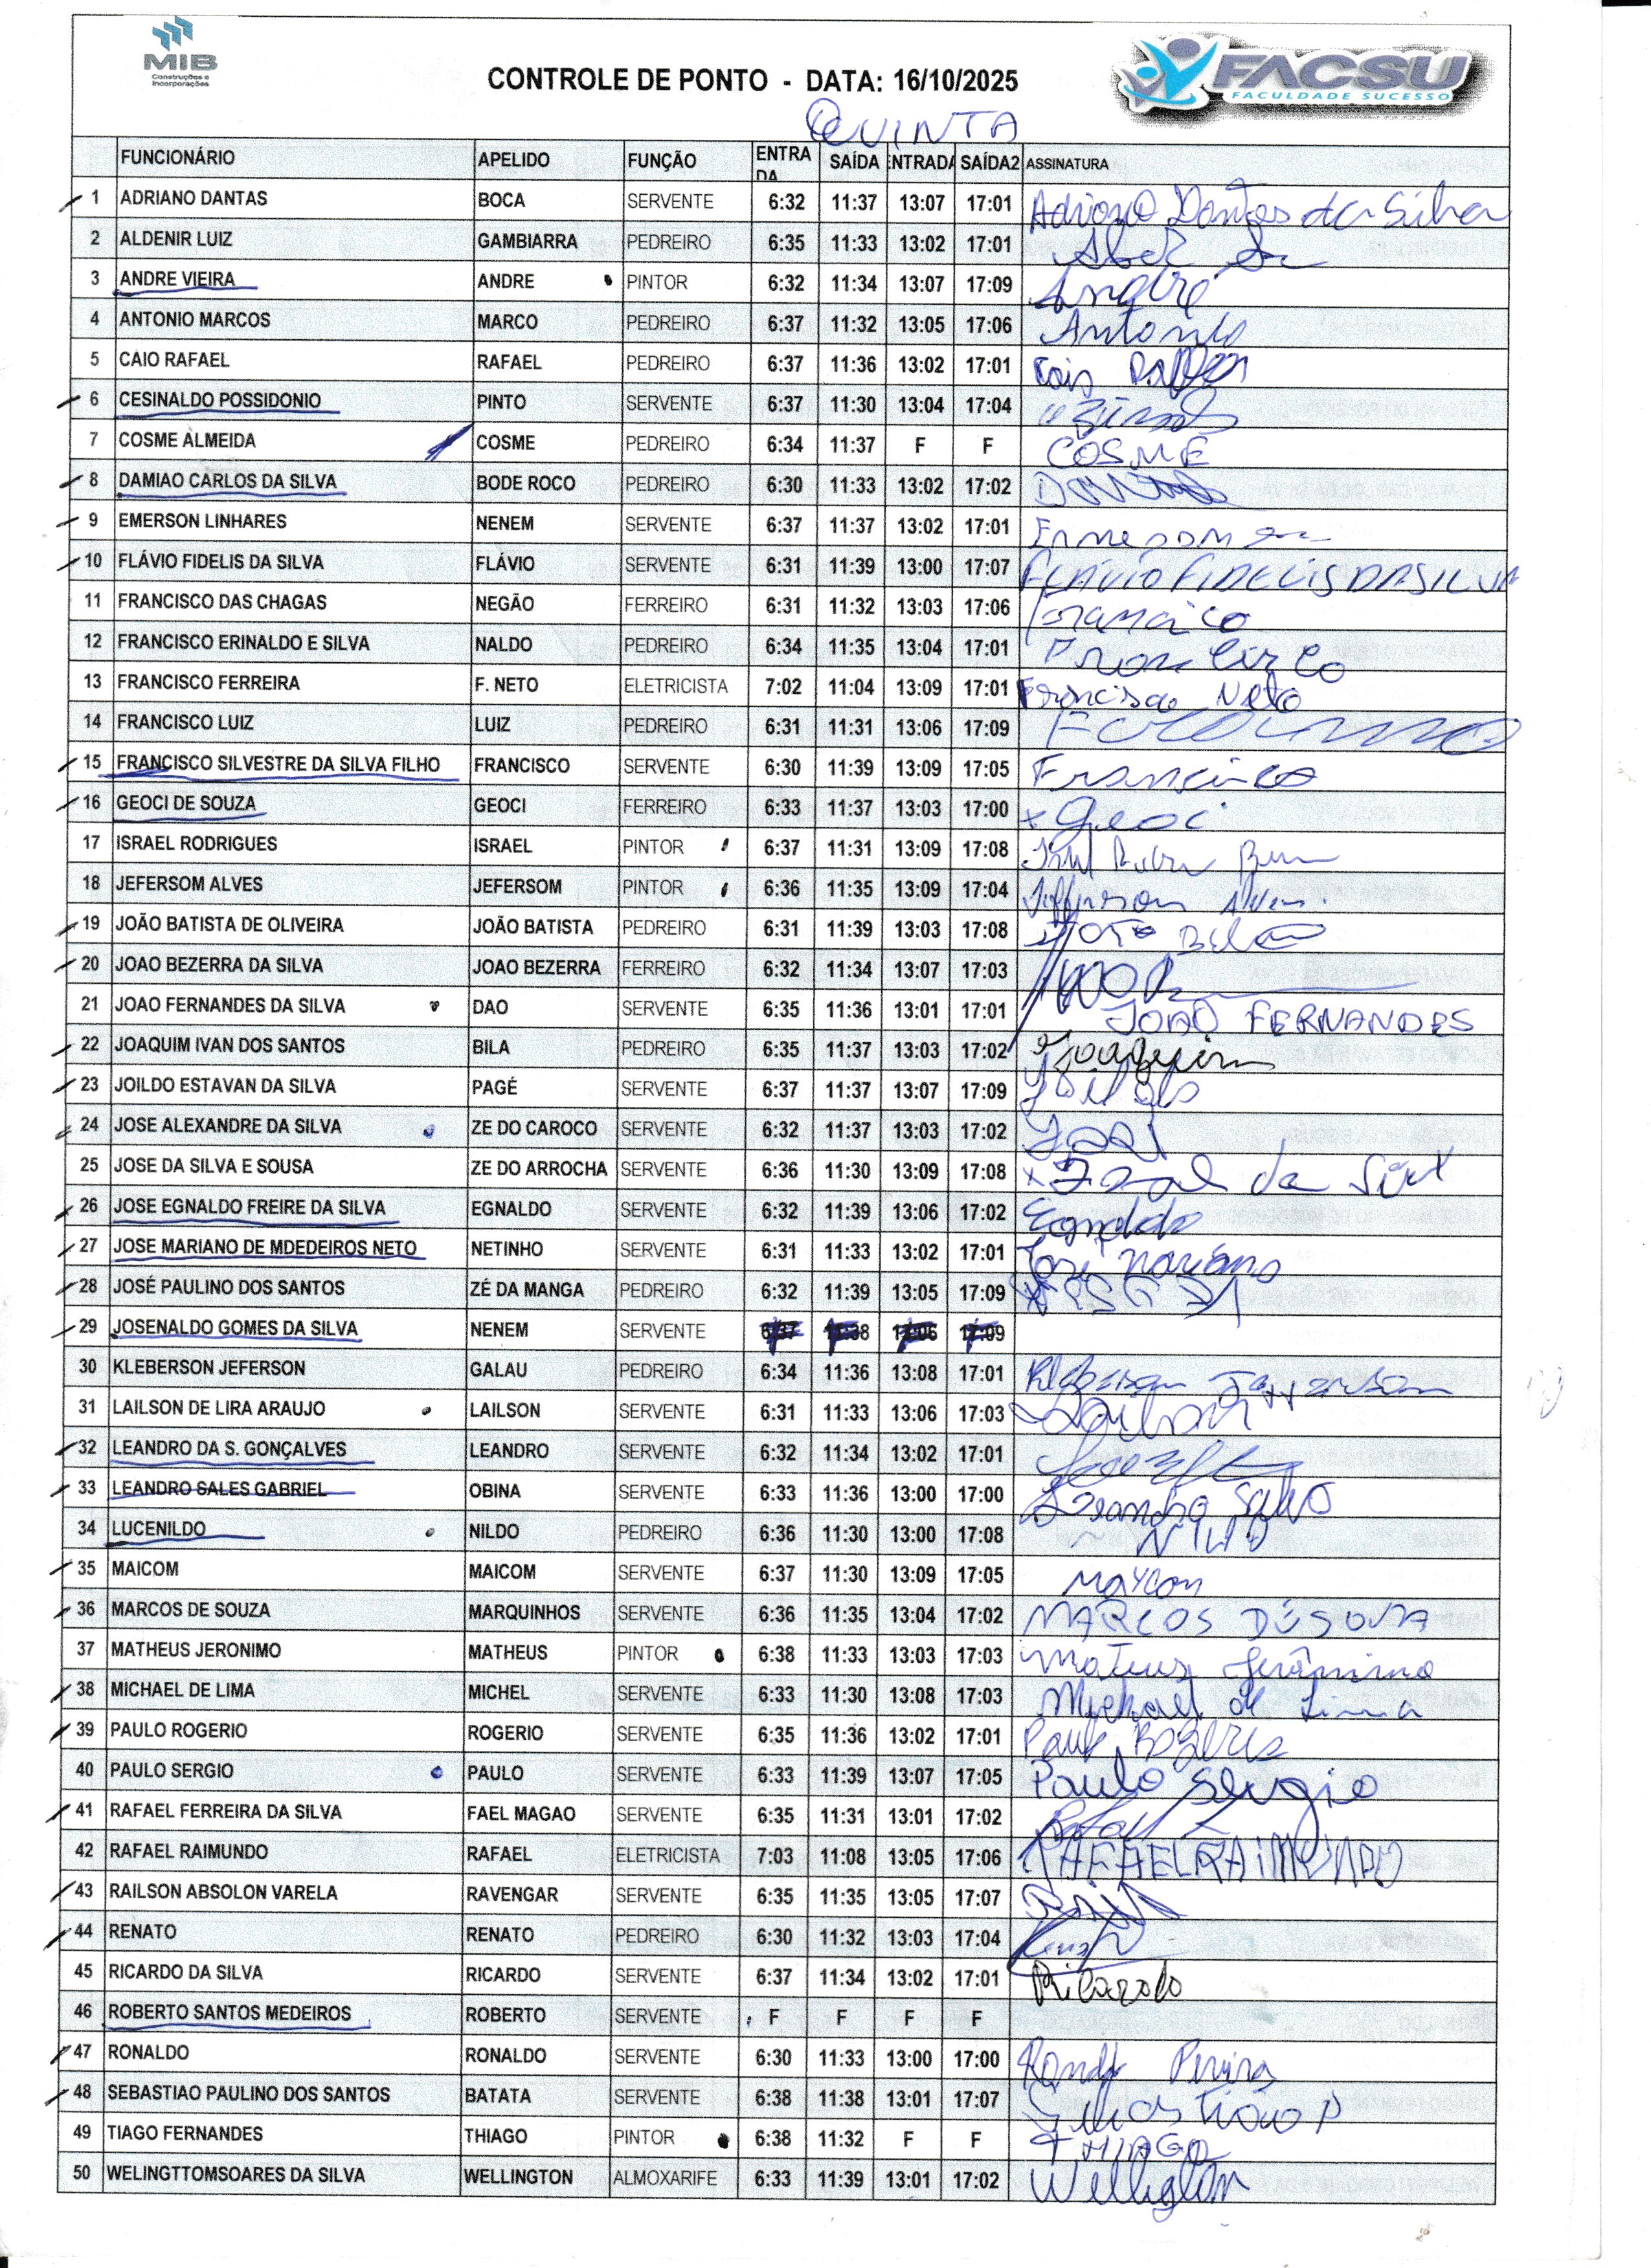 MIB
Construções e
Incorporações
CONTROLE DE PONTO - DATA: 16/10/2025
FACSU
FACULDADE SUCESSO
QUINTA
FUNCIONÁRIO APELIDO FUNÇÃO ENTRA DA SAÍDA ENTRADA SAÍDA2 ASSINATURA
1 ADRIANO DANTAS BOCA SERVENTE 6:32 11:37 13:07 17:01 Adriano Dantas da Silva
2 ALDENIR LUIZ GAMBIARRA PEDREIRO 6:35 11:33 13:02 17:01
3 ANDRE VIEIRA ANDRE PINTOR 6:32 11:34 13:07 17:09 André
4 ANTONIO MARCOS MARCO PEDREIRO 6:37 11:32 13:05 17:06 Antonio
5 CAIO RAFAEL RAFAEL PEDREIRO 6:37 11:36 13:02 17:01
6 CESINALDO POSSIDONIO PINTO SERVENTE 6:37 11:30 13:04 17:04
7 COSME ALMEIDA COSME PEDREIRO 6:34 11:37 F F COSME
8 DAMIAO CARLOS DA SILVA BODE ROCO PEDREIRO 6:30 11:33 13:02 17:02
9 EMERSON LINHARES NENEM SERVENTE 6:37 11:37 13:02 17:01
10 FLÁVIO FIDELIS DA SILVA FLÁVIO SERVENTE 6:31 11:39 13:00 17:07 FLÁVIO FIDELIS DA SILVA
11 FRANCISCO DAS CHAGAS NEGÃO FERREIRO 6:31 11:32 13:03 17:06
12 FRANCISCO ERINALDO E SILVA NALDO PEDREIRO 6:34 11:35 13:04 17:01
13 FRANCISCO FERREIRA F. NETO ELETRICISTA 7:02 11:04 13:09 17:01 Francisco Neto
14 FRANCISCO LUIZ LUIZ PEDREIRO 6:31 11:31 13:06 17:09
15 FRANCISCO SILVESTRE DA SILVA FILHO FRANCISCO SERVENTE 6:30 11:39 13:09 17:05 Francisco
16 GEOCI DE SOUZA GEOCI FERREIRO 6:33 11:37 13:03 17:00 x Geoci
17 ISRAEL RODRIGUES ISRAEL PINTOR 6:37 11:31 13:09 17:08
18 JEFERSOM ALVES JEFERSOM PINTOR 6:36 11:35 13:09 17:04 Jefferson Alves
19 JOÃO BATISTA DE OLIVEIRA JOÃO BATISTA PEDREIRO 6:31 11:39 13:03 17:08
20 JOAO BEZERRA DA SILVA JOAO BEZERRA FERREIRO 6:32 11:34 13:07 17:03
21 JOAO FERNANDES DA SILVA DAO SERVENTE 6:35 11:36 13:01 17:01 JOAO FERNANDES
22 JOAQUIM IVAN DOS SANTOS BILA PEDREIRO 6:35 11:37 13:03 17:02 Joaquim
23 JOILDO ESTAVAN DA SILVA PAGÉ SERVENTE 6:37 11:37 13:07 17:09 Joildo
24 JOSE ALEXANDRE DA SILVA ZE DO CAROCO SERVENTE 6:32 11:37 13:03 17:02
25 JOSE DA SILVA E SOUSA ZE DO ARROCHA SERVENTE 6:36 11:30 13:09 17:08
26 JOSE EGNALDO FREIRE DA SILVA EGNALDO SERVENTE 6:32 11:39 13:06 17:02 Egnaldo
27 JOSE MARIANO DE MDEDEIROS NETO NETINHO SERVENTE 6:31 11:33 13:02 17:01 José Mariano
28 JOSÉ PAULINO DOS SANTOS ZÉ DA MANGA PEDREIRO 6:32 11:39 13:05 17:09
29 JOSENALDO GOMES DA SILVA NENEM SERVENTE 6:37 11:38 13:06 17:09
30 KLEBERSON JEFERSON GALAU PEDREIRO 6:34 11:36 13:08 17:01 Kleberson Jefferson
31 LAILSON DE LIRA ARAUJO LAILSON SERVENTE 6:31 11:33 13:06 17:03 Lailson
32 LEANDRO DA S. GONÇALVES LEANDRO SERVENTE 6:32 11:34 13:02 17:01
33 LEANDRO SALES GABRIEL OBINA SERVENTE 6:33 11:36 13:00 17:00
34 LUCENILDO NILDO PEDREIRO 6:36 11:30 13:00 17:08 NILDO
35 MAICOM MAICOM SERVENTE 6:37 11:30 13:09 17:05 Maycon
36 MARCOS DE SOUZA MARQUINHOS SERVENTE 6:36 11:35 13:04 17:02 MARCOS DE SOUZA
37 MATHEUS JERONIMO MATHEUS PINTOR 6:38 11:33 13:03 17:03 Mateus Jerônimo
38 MICHAEL DE LIMA MICHEL SERVENTE 6:33 11:30 13:08 17:03 Michael de Lima
39 PAULO ROGERIO ROGERIO SERVENTE 6:35 11:36 13:02 17:01 Paulo Rogerio
40 PAULO SERGIO PAULO SERVENTE 6:33 11:39 13:07 17:05 Paulo Sergio
41 RAFAEL FERREIRA DA SILVA FAEL MAGAO SERVENTE 6:35 11:31 13:01 17:02 Rafael
42 RAFAEL RAIMUNDO RAFAEL ELETRICISTA 7:03 11:08 13:05 17:06 RAFAEL RAIMUNDO
43 RAILSON ABSOLON VARELA RAVENGAR SERVENTE 6:35 11:35 13:05 17:07
44 RENATO RENATO PEDREIRO 6:30 11:32 13:03 17:04
45 RICARDO DA SILVA RICARDO SERVENTE 6:37 11:34 13:02 17:01 Ricardo
46 ROBERTO SANTOS MEDEIROS ROBERTO SERVENTE F F F F
47 RONALDO RONALDO SERVENTE 6:30 11:33 13:00 17:00
48 SEBASTIAO PAULINO DOS SANTOS BATATA SERVENTE 6:38 11:38 13:01 17:07
49 TIAGO FERNANDES THIAGO PINTOR 6:38 11:32 F F THIAGO
50 WELINGTTOMSOARES DA SILVA WELLINGTON ALMOXARIFE 6:33 11:39 13:01 17:02 Wellington